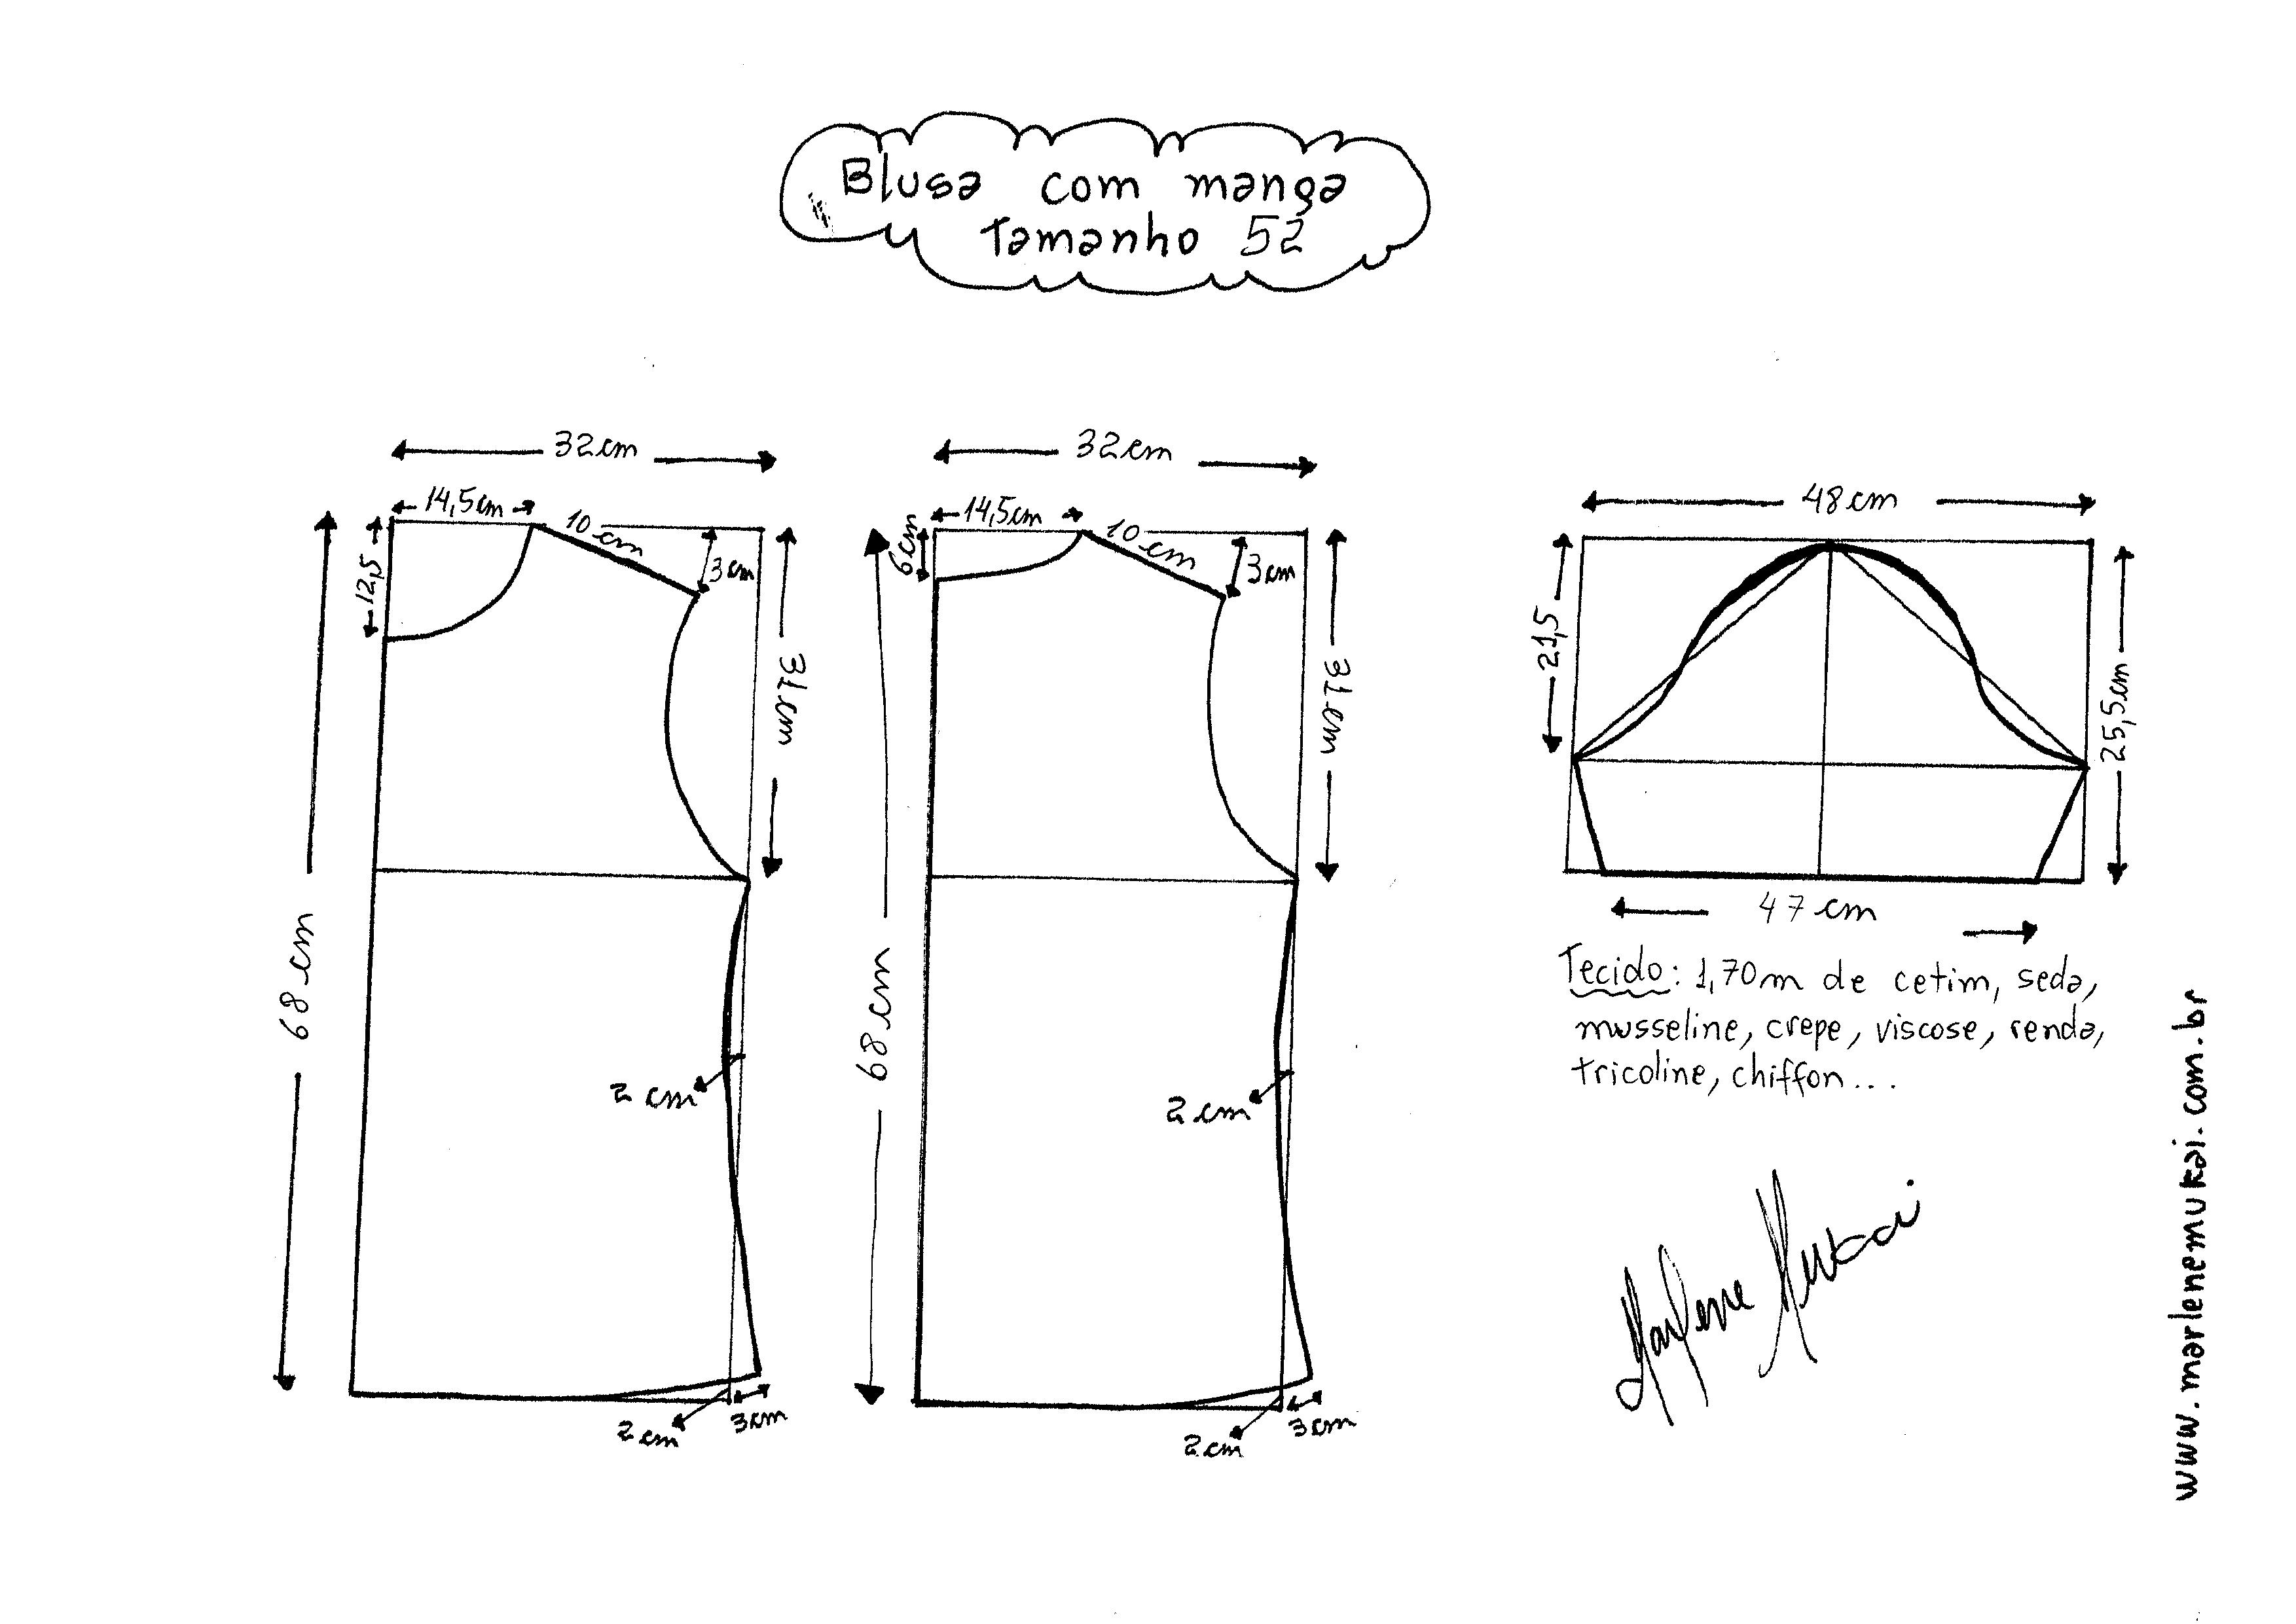 Blusa com manga
Tamanho 52
32cm
14,5cm
10 cm
3cm
12,5
31cm
68cm
2 cm
2 cm
3cm
32cm
14,5cm
10 cm
3cm
6cm
31cm
68cm
2 cm
2 cm
3cm
48cm
21,5
25,5cm
47cm
Tecido: 1,70m de cetim, seda,
musseline, crepe, viscose, renda,
tricoline, chiffon...
Marlene Mukai
www.marlenemukai.com.br